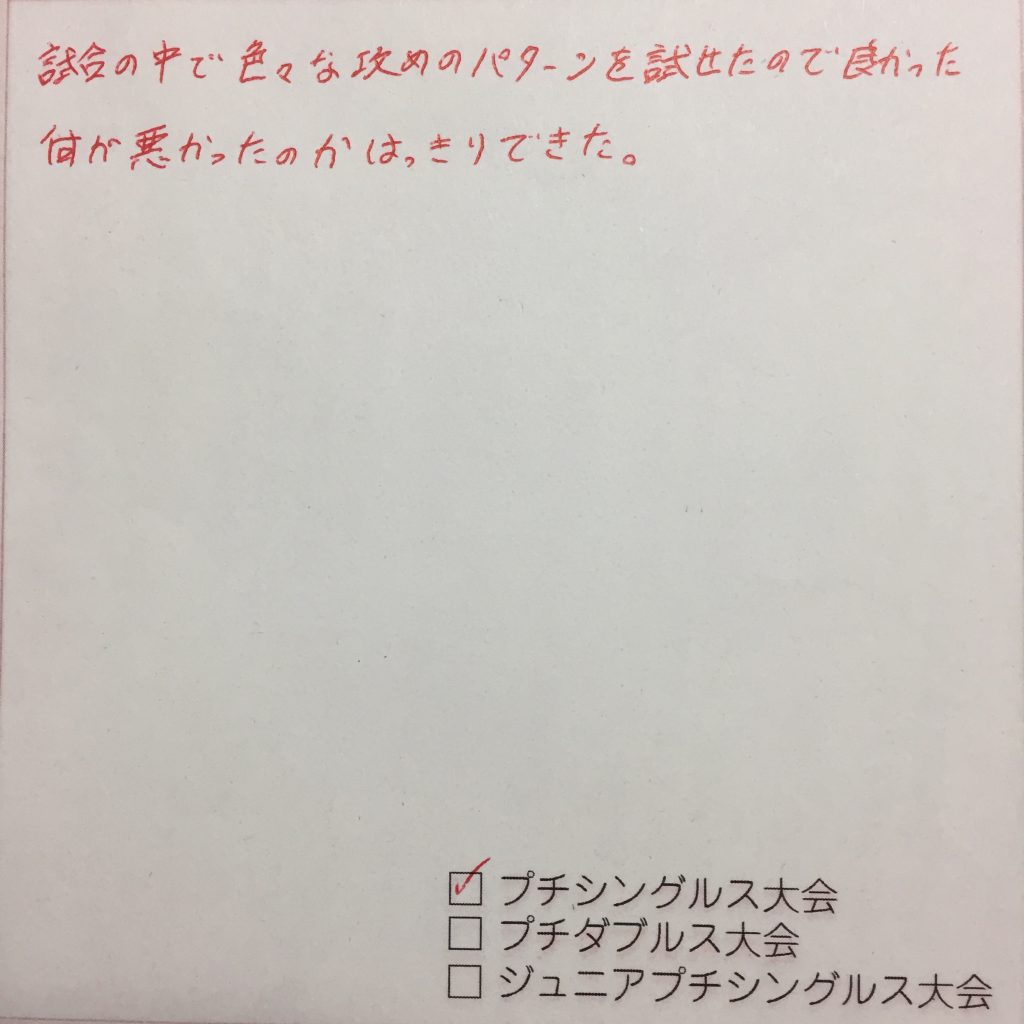 試合の中で色々な攻めのパターンを試せたので良かった
何が悪かったのかはっきりできた。
☑ プチシングルス大会
☐ プチダブルス大会
☐ ジュニアプチシングルス大会